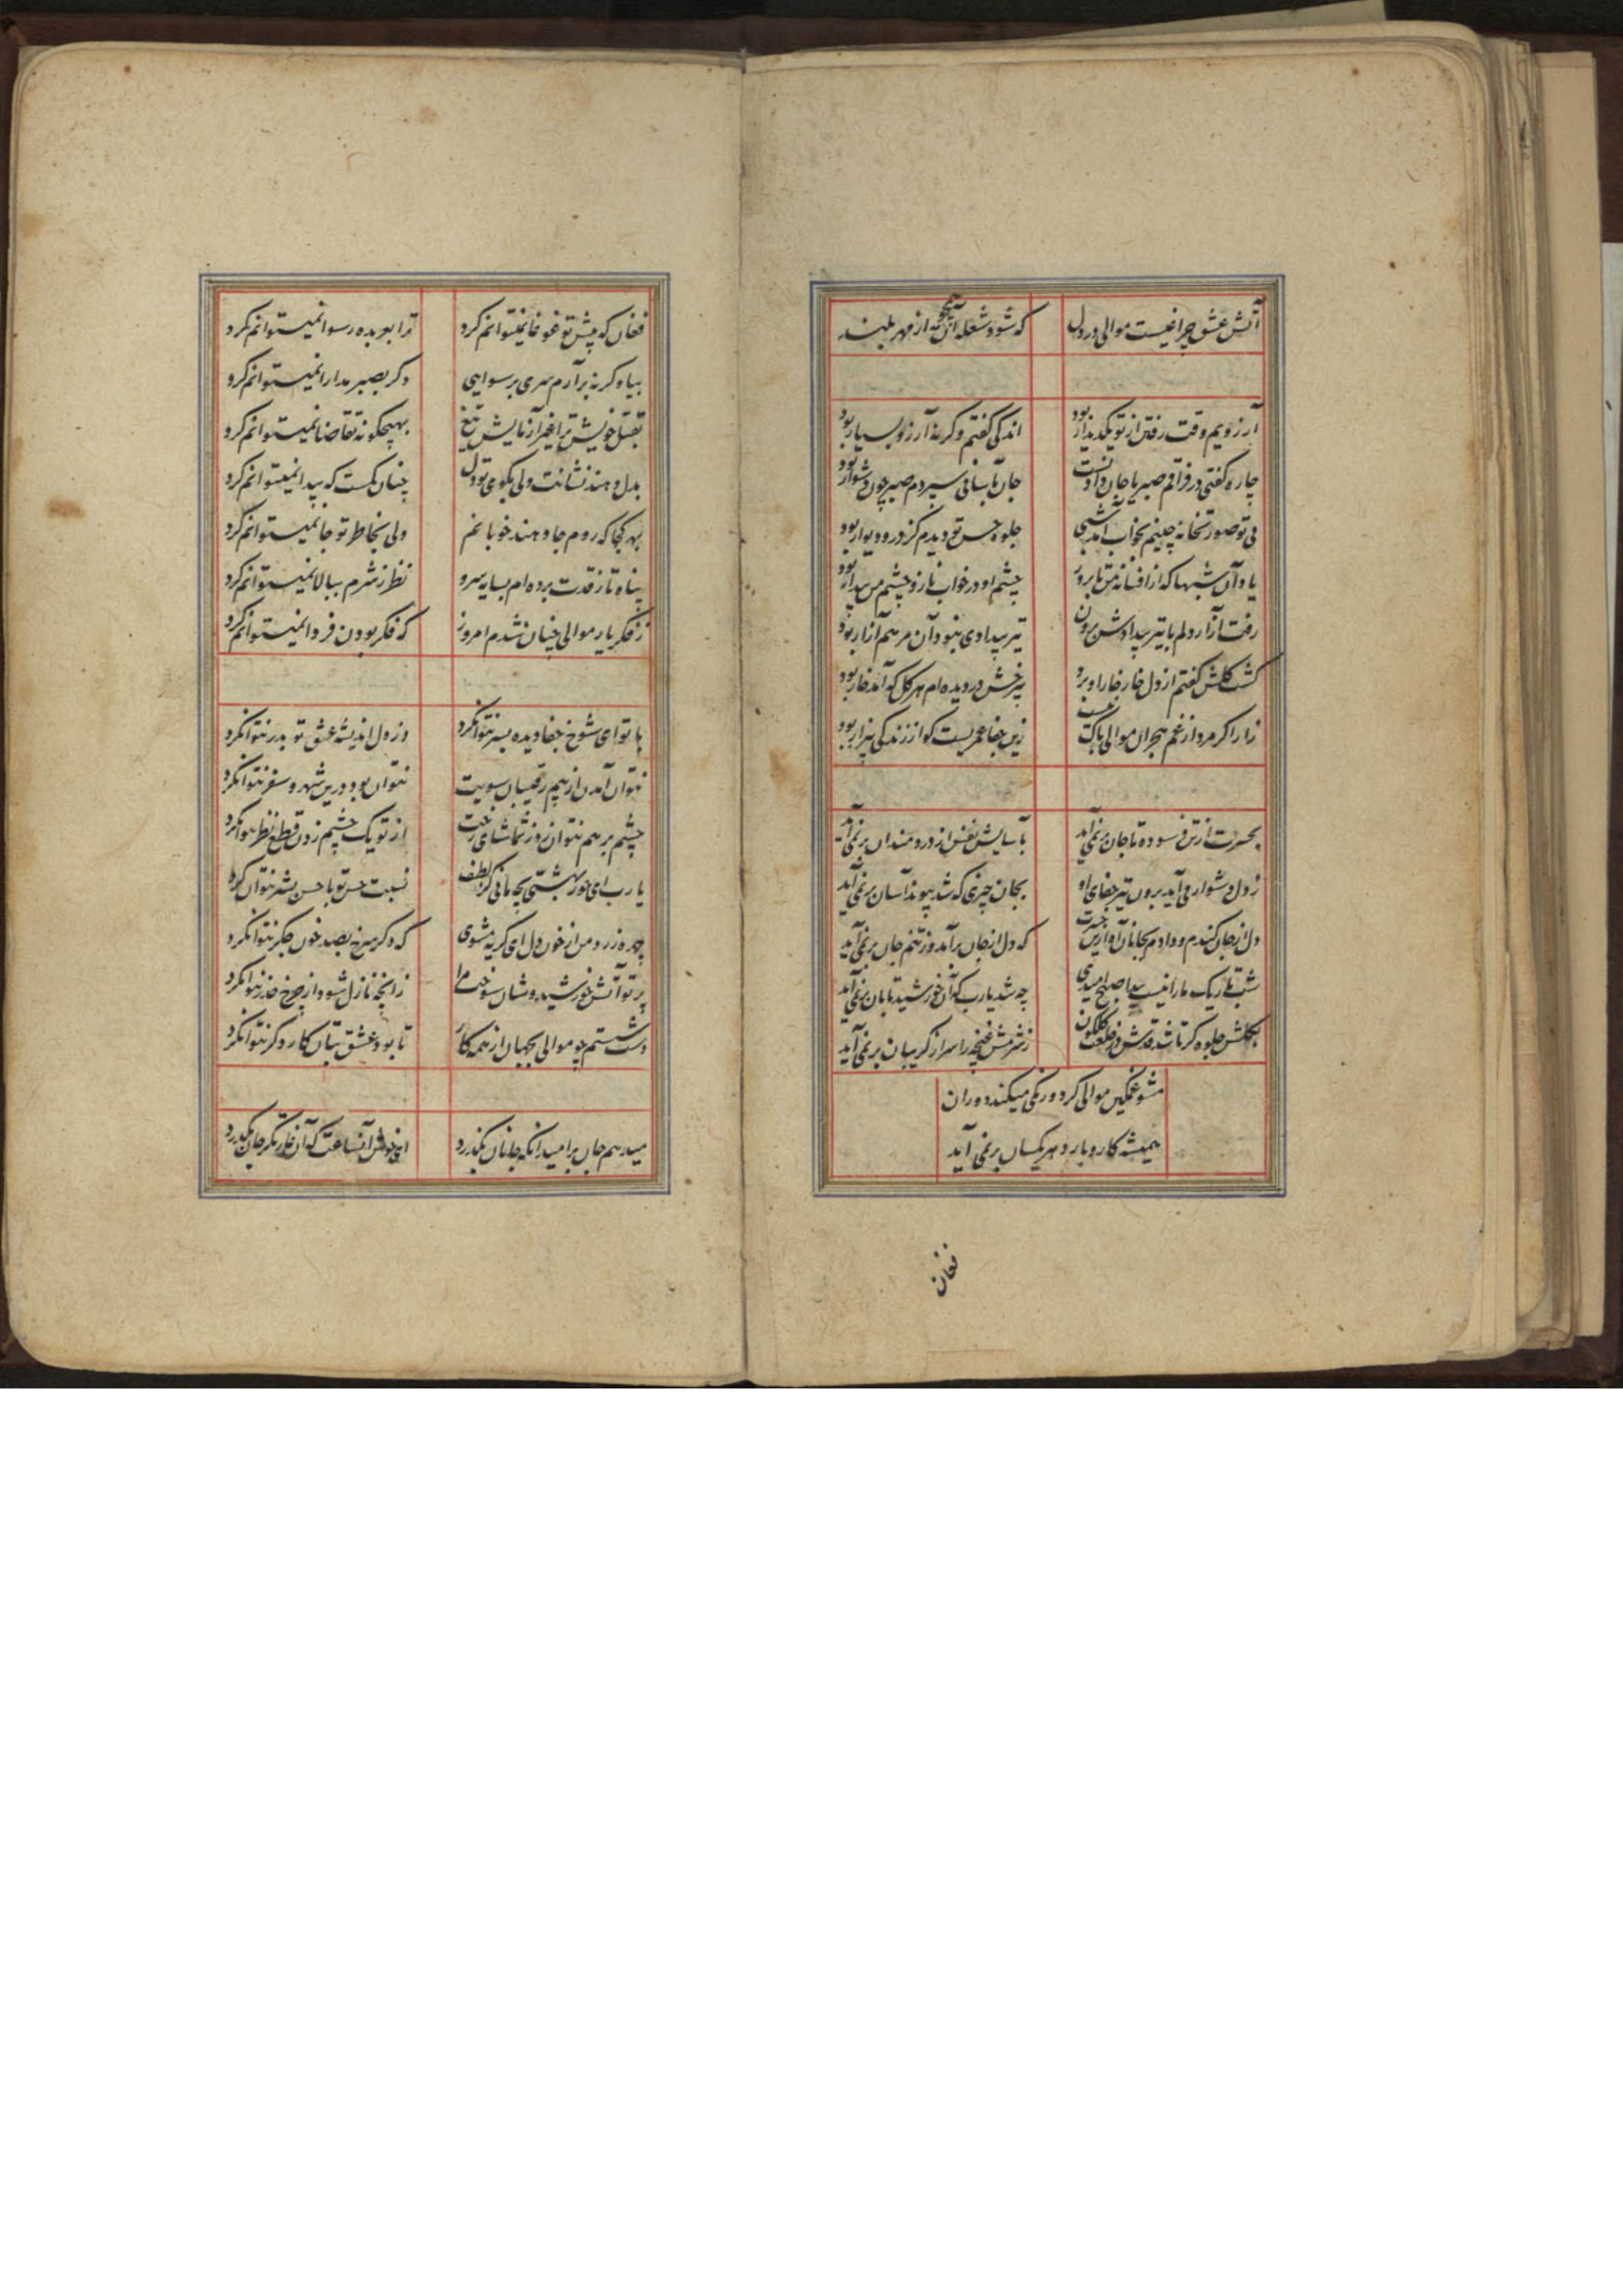 آتش عشق چراغیست موالی در دل
که شود شعله آن از مهر بلند
آرزویم وقت رفتن از تو یکدیدار بود
اندکی گفتم وگرنه آرزو بسیار بود
چاره گفتی در فراقم صبر یا جان دادنست
جان بآسانی سپردم صبر چون دشوار بود
بی تو صورتخانه چینم بخواب آمد شبی
جلوه حسن تو دیدم کز در و دیوار بود
یاد آن شبها که از افسانه من تا بروز
چشم او در خواب ناز و چشم من بیدار بود
رفت آزار دلم با تیر بیدادش برون
تیر بیدادی نبود آن مرهم آزار بود
گشت گلشن گفتم از دل خار خار او برد
بی رخش در دیده ام هر گل که آمد خار بود
زار اگر مرد از غم هجران موالی باک نیست
زین جفا عمریست کو از زندگی بیزار بود
بحسرت از تن فرسوده تا جان برنمی آید
بآسایش نفس از دردمندان برنمی آید
ز دل دشوار می آید برون تیر جفای او
بجان چیزی که شد پیوند آسان برنمی آید
دل از جان کندم و دادم بجانان آه ازین حسرت
که دل از جان برآمد وز تنم جان برنمی آید
شب تاریک ما را نیست پیدا صبح امیدی
چه شد یارب که آن خورشید تابان برنمی آید
بگلشن جلوه گر تا شد قدش در خلعت گلگون
ز شرمش غنچه را سر از گریبان برنمی آید
مشو غمگین موالی گر دورنگی میکند دوران
همیشه کار و بار دهر یکسان برنمی آید
فغان
فغان که پیش تو غوغا نمیتوانم کرد
ترا بعربده رسوا نمیتوانم کرد
بیا وگرنه برآرم سری برسوایی
دگر بصبر مدارا نمیتوانم کرد
بقتل خویش ترا غیر آزمایش تیغ
بهیچگونه تقاضا نمیتوانم کرد
بدل دهند نشانت ولی بکوی تو دل
چنان گمست که پیدا نمیتوانم کرد
بهر کجا که روم جا دهند خوبانم
ولی بخاطر تو جا نمیتوانم کرد
پناه تا ز قدت برده ام بسایه سرو
نظر ز شرم ببالا نمیتوانم کرد
ز فکر یار موالی چنان شدم امروز
که فکر بودن فردا نمیتوانم کرد
با تو ای شوخ جفا دیده بسر نتوانکرد
وز دل اندیشه عشق تو بدر نتوانکرد
نتوان آمدن از بیم رقیبان سویت
نتوان بود درین شهر و سفر نتوانکرد
چشم بر هم نتوان زد ز تماشای رخت
از تو یک چشم زدن قطع نظر نتوانکرد
یارب ای حور بهشتی بچه مانی کز لطف
نسبت حسن تو با حسن بشر نتوان کرد
چهره زرد من از خون دل ای گریه مشوی
که دگر سرخ بصد خون جگر نتوانکرد
پرتو آتش خورشید وشان سوخت مرا
زانچه نازل شود از چرخ حذر نتوانکرد
دست شستم چو موالی بجهان از همه کار
تا بود عشق بتان کار دگر نتوانکرد
میدهم جان بر امید آنکه جانان بگذرد
ای خوش آنساعت که آن غارتگر جان بگذرد